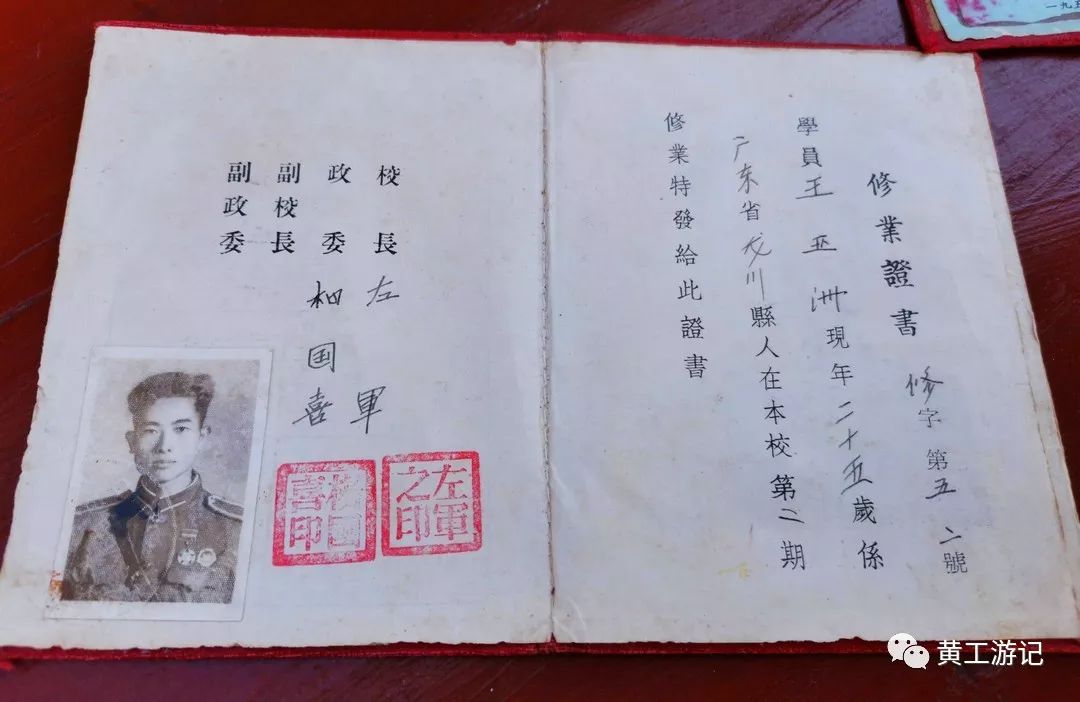 修業證書
修字第五二號
學員王亚洲現年二十五歲係
广东省龙川縣人在本校第二期
修業特發給此證書
校長左軍
政委国喜
副校長
副政委
左軍之印
喜印
一九五
黄工游记